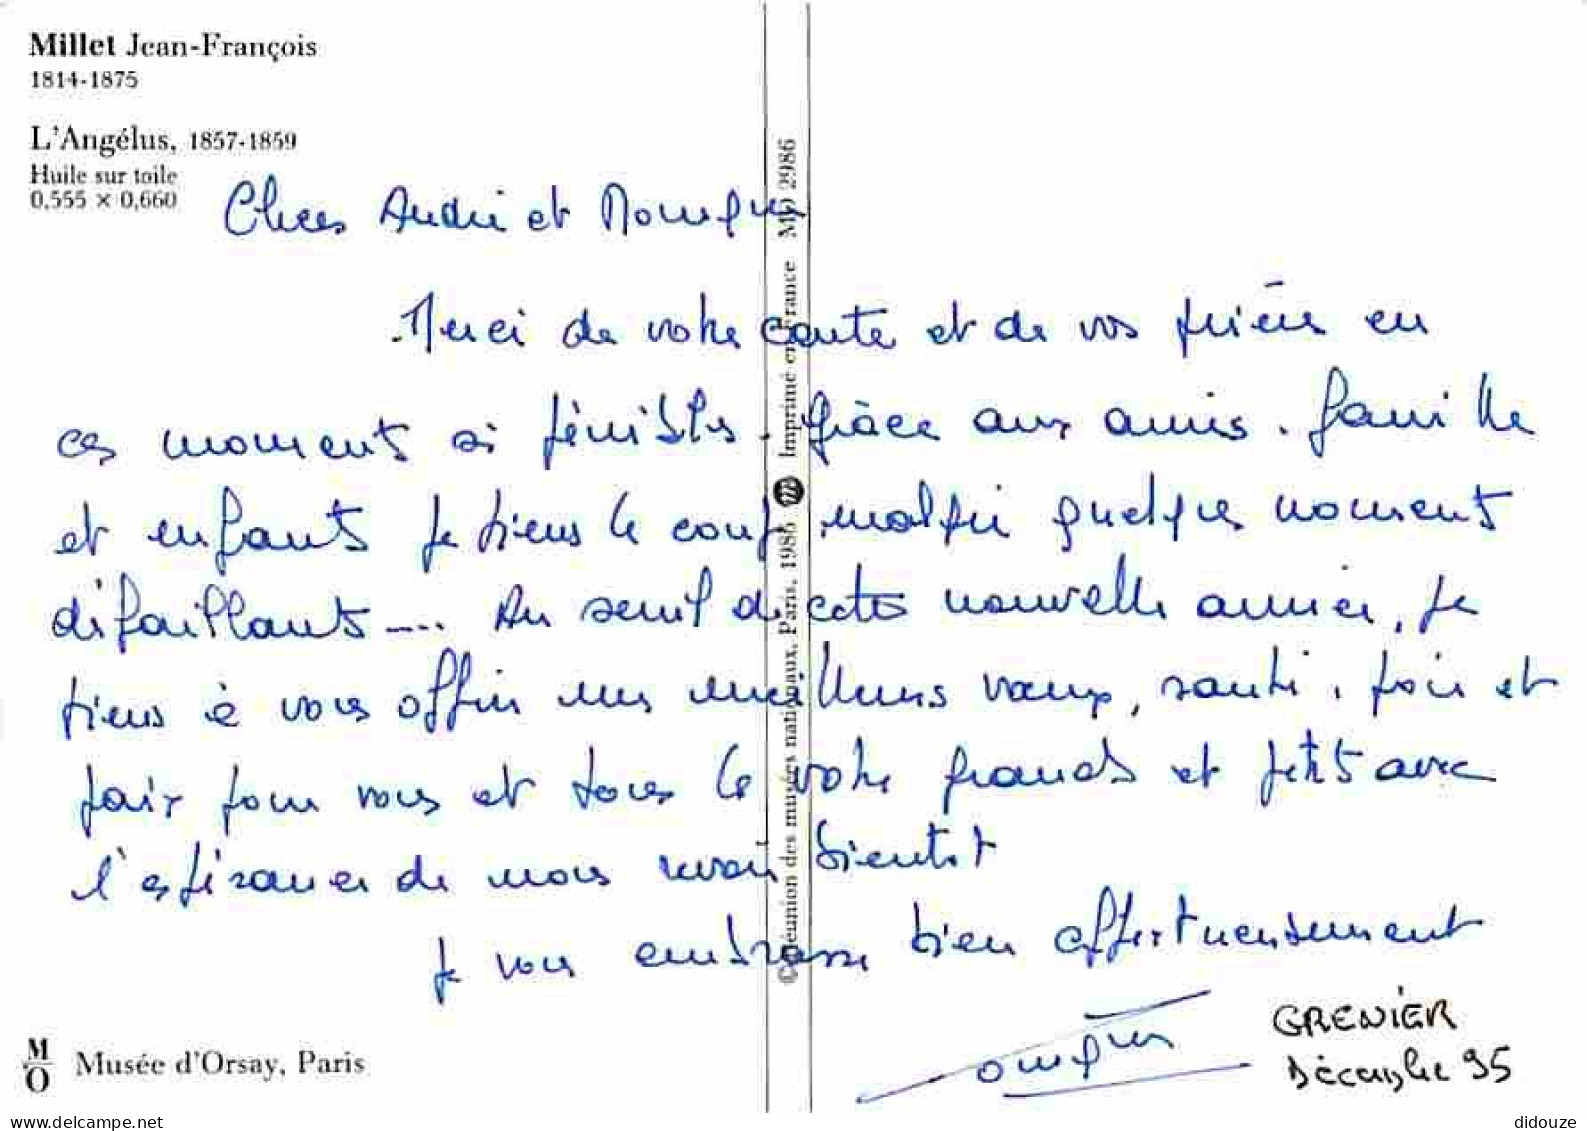 Millet Jean-François
1814-1875
L'Angélus, 1857-1859
Huile sur toile
0,555 × 0,660
Chers André et Monique
Merci de votre carte et de vos prières en
ces moments si pénibles. Grâce aux amis. famille
et enfants je tiens le coup malgré quelques moments
défaillants .... Au seuil de cette nouvelle année, je
tiens à vous offrir mes meilleurs vœux, santé, joie et
paix pour vous et tous le votre grands et petits avec
l'espérance de nous revoir bientôt
Je vous embrasse bien affectueusement
GRENIER
Décembre 95
M
O
Musée d'Orsay, Paris
© Réunion des musées nationaux, Paris, 1986 Imprimé en France MO 2986
delcampe.net
didouze